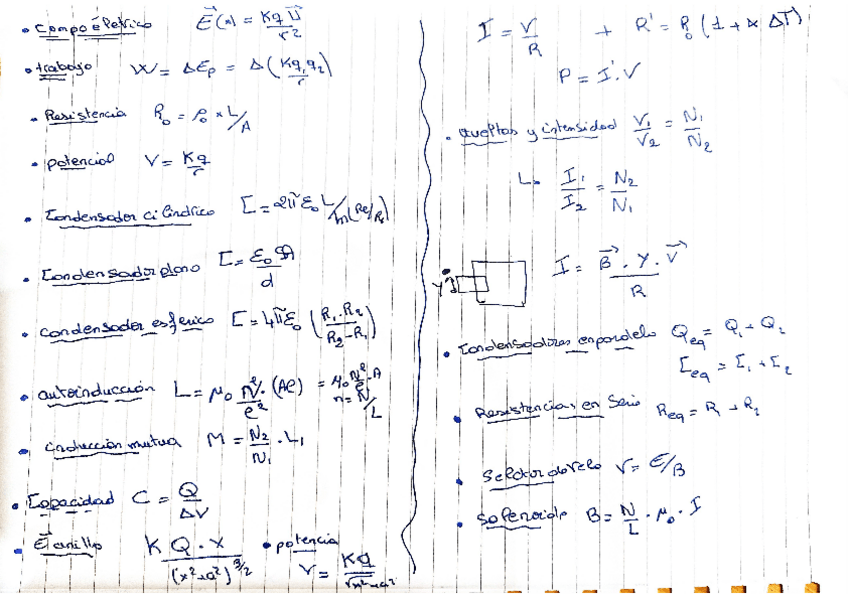 • Campo életrico E⃗(x) = Kq U⃗ / r²
• trabajo W = ΔEp = Δ(Kq₁q₂/r)
• Resistencia R₀ = ρ₀ × L/A
• potencial V = Kq/r
• Condensador cilíndrico C = 2π ε₀ L / ln(Re/Ri)
• Condensador plano C = ε₀ A / d
• condensador esferico C = 4π ε₀ (R₁·R₂ / R₂-R₁)
• autoinducción L = μ₀ N²/ℓ² · (Aℓ) = μ₀ N²/ℓ · A
n = N/L
• inducción mutua M = N₂/N₁ · L₁
• Capacidad C = Q/ΔV
• E⃗ anillo K Q · x / (x²+a²)^3/2 • potencia V = Kq / √x²+a²
I = V/R + R' = R₀ (1 + α ΔT)
P = I'·V
V₁/V₂ = N₁/N₂
I₁/I₂ = N₂/N₁
y
I = B⃗ · y · V⃗ / R
• Condensadores en paralelo Qeq = Q₁ + Q₂
Ceq = C₁ + C₂
• Resistencias en Serie Req = R₁ + R₂
• Selector de velo V = E/B
• Solenoide B = N/L · μ₀ · I